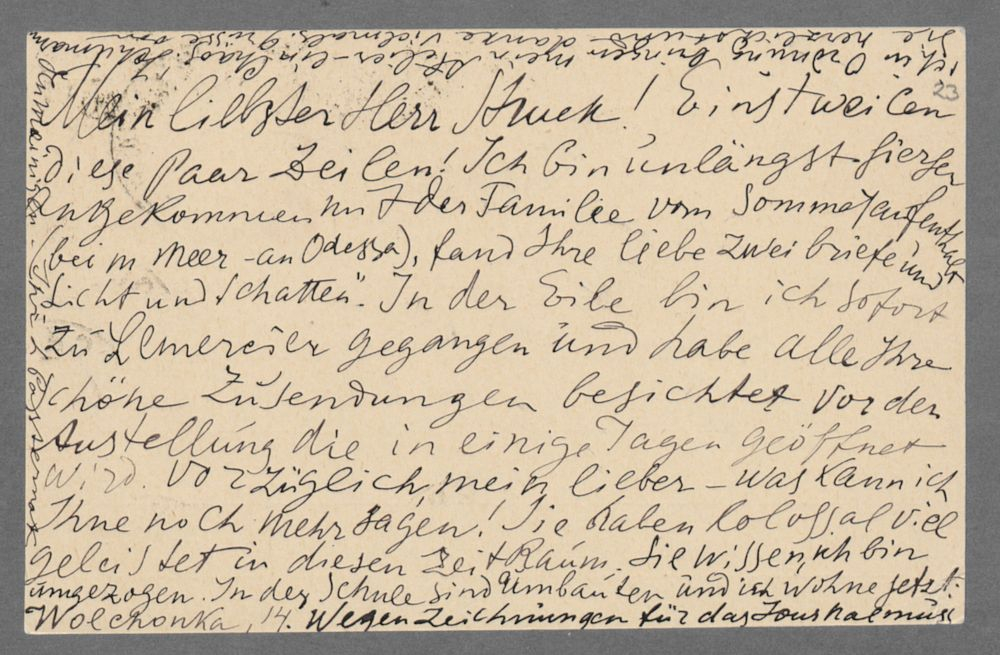 Mein liebster Herr Struck! Einstweilen
diese Paar Zeilen! Ich bin unlängst hierher
angekommen mit der Familie vom Sommeraufenthalt
(beim Meer - an Odessa), fand Ihre liebe zwei briefe und
Licht und Schatten". In der Eile bin ich sofort
zu Lemercier gegangen und habe alle Ihre
schöne Zusendungen besichtet vor der
Austellung die in einige Tagen geöffnet
wird. Vorzüglich, mein lieber - was kann ich
Ihne noch mehr sagen! Sie haben kolossal viel
geleistet in diesen ZeitRaum. Sie wissen, ich bin
umgezogen. In der Schule sind Umbauten und ich wohne jetzt:
Wolchonka, 14. Wegen Zeichnungen für das Journal muss
ich in Ordnung bringen mein Atelier - ein Chaos!
Sie herzlichst und danke vielmals. Grüsse von